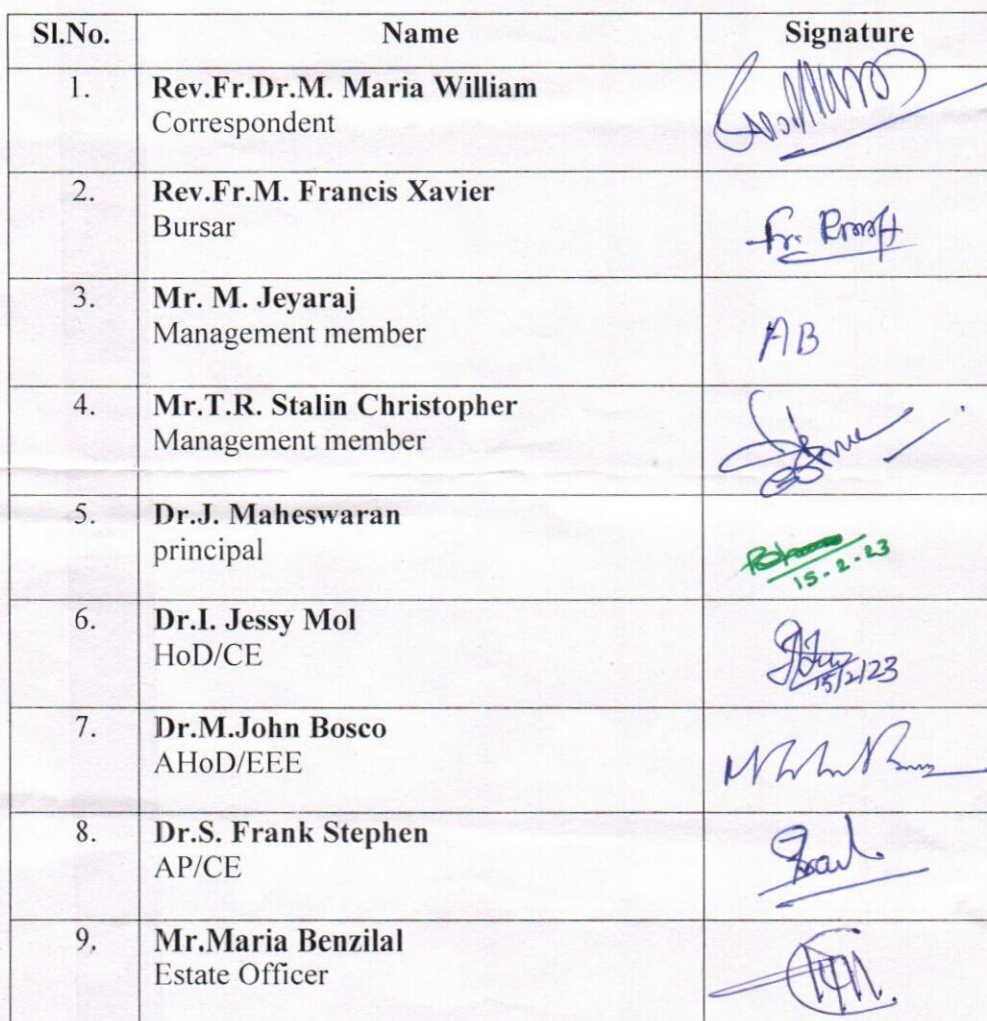 Sl.No. Name Signature
1. Rev.Fr.Dr.M. Maria William
Correspondent
2. Rev.Fr.M. Francis Xavier
Bursar
Fr.
3. Mr. M. Jeyaraj
Management member
AB
4. Mr.T.R. Stalin Christopher
Management member
5. Dr.J. Maheswaran
principal
15.2.23
6. Dr.I. Jessy Mol
HoD/CE
15/2/23
7. Dr.M.John Bosco
AHoD/EEE
8. Dr.S. Frank Stephen
AP/CE
9. Mr.Maria Benzilal
Estate Officer